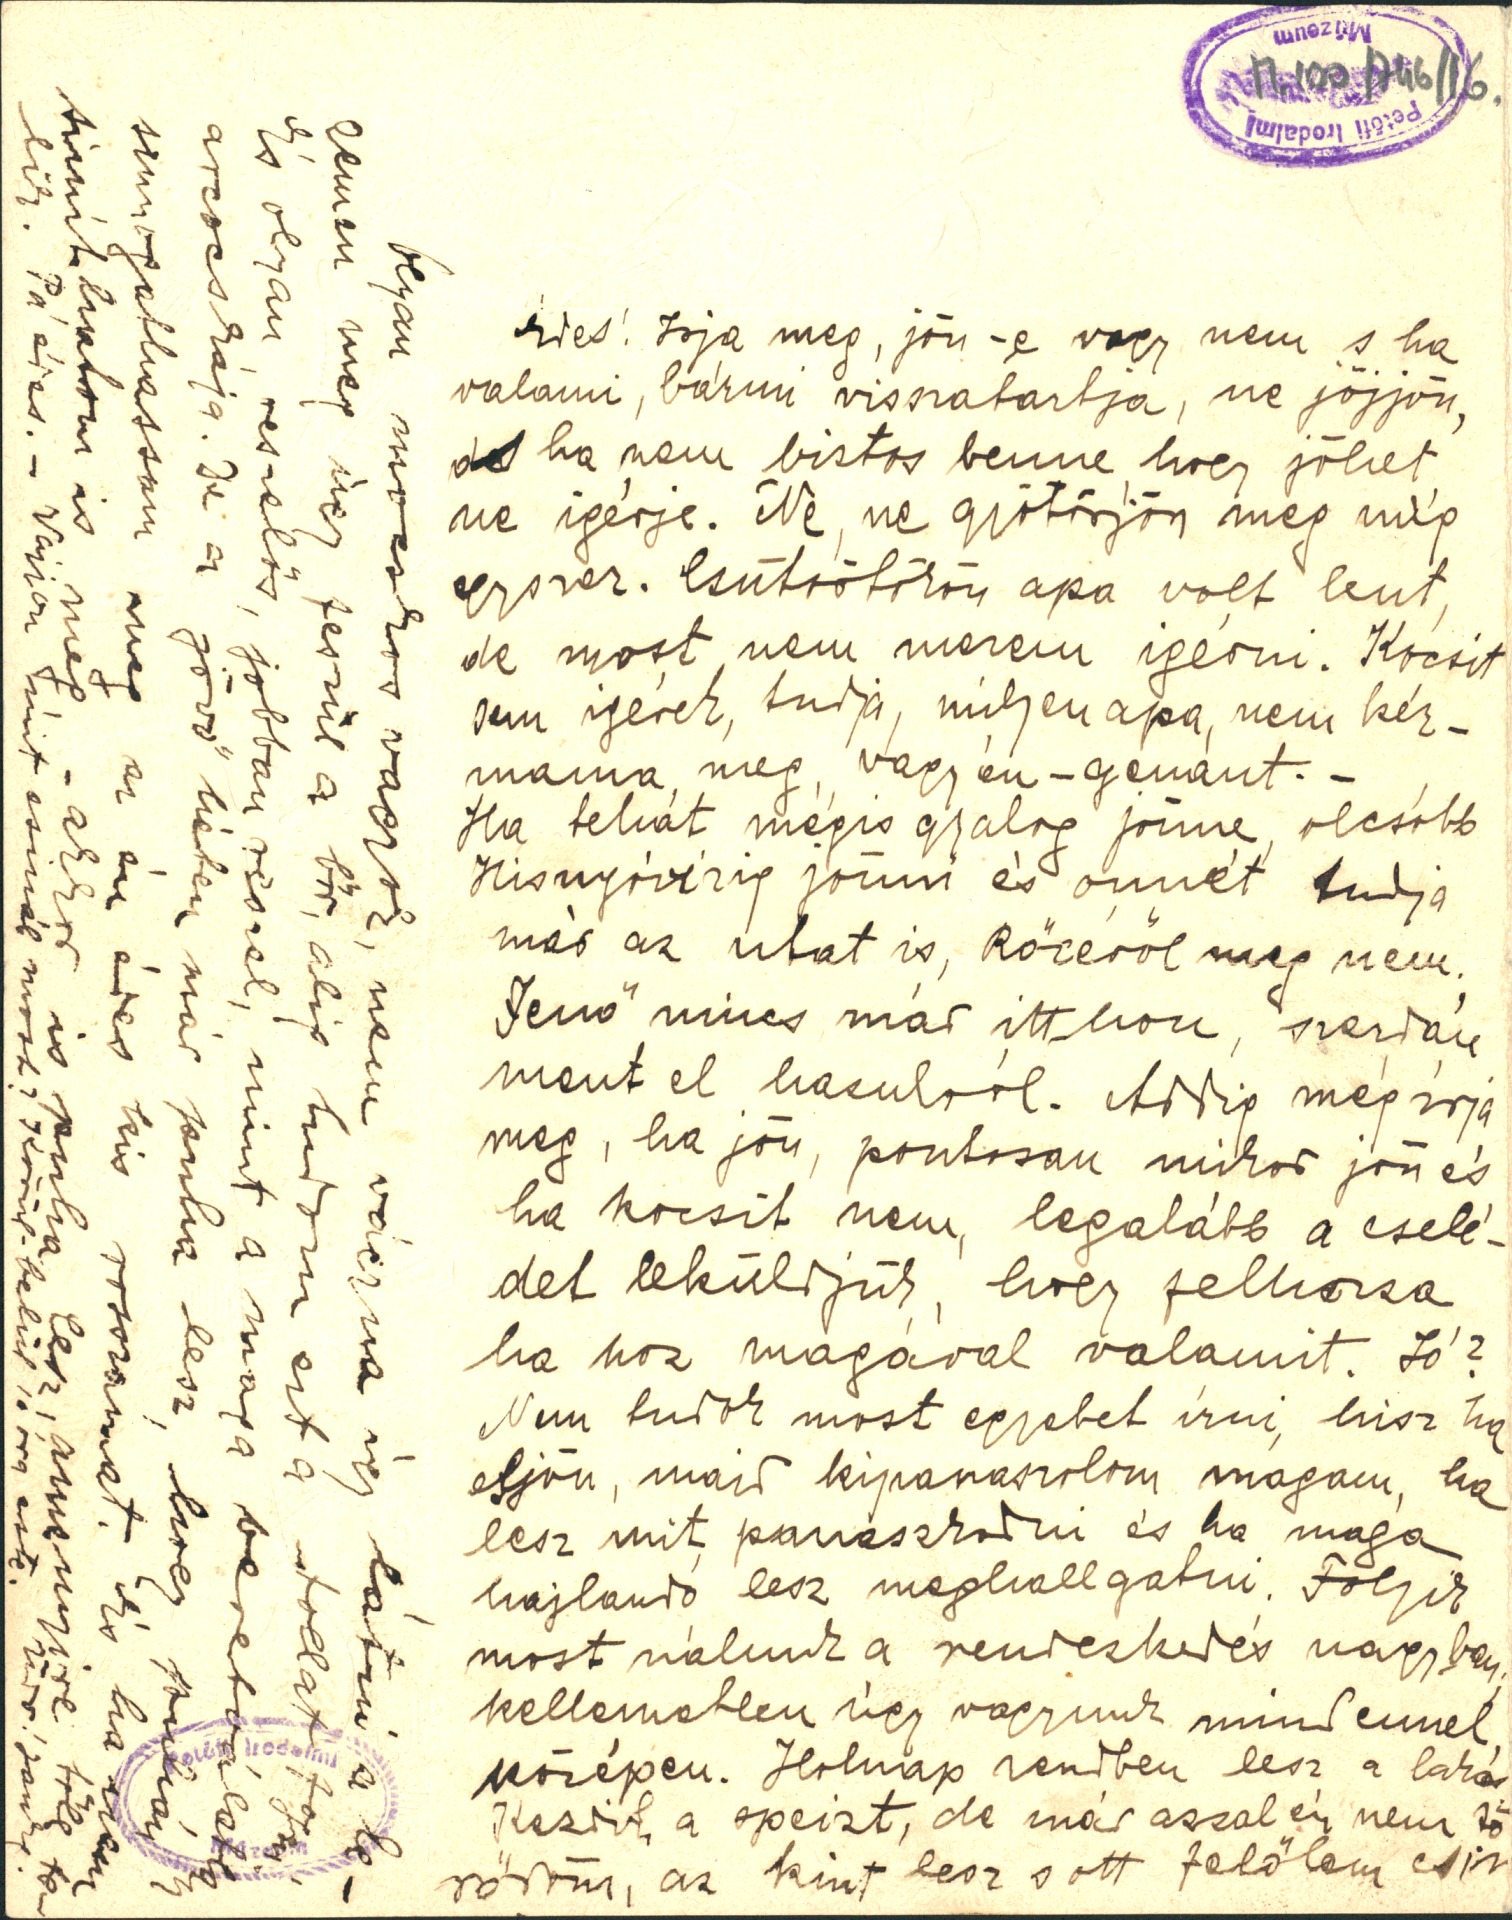 Petőfi Irodalmi
Múzeum
édes! Irja meg, jön-e vagy nem s ha
valami, bármi visszatartja, ne jöjjön,
de ha nem biztos benne, hogy jöhet
ne igérje. Ne, ne gyötörjön meg még
egyszer. Csütörtökön apa volt lent,
de most nem merem igérni. Kocsit
sem igérek, tudja, milyen apa, nem kér-
mama meg, vagy én - genánt. -
Ha tehát mégis gyalog jönne, olcsóbb
Hisnyóvizig jönni és onnét tudja
már az utat is, Rőcéről meg nem.
Jenő nincs már itthon, szerdán
ment el hazulról. Addig még irja
meg, ha jön, pontosan mikor jön és
ha kocsit nem, legalább a cselé-
det leküldjük, hogy felhozza
ha hoz magával valamit. Jó?
Nem tudok most egyebet írni, hisz ha
eljön, majd kipanaszolom magam, ha
lesz mit panaszkodni és ha maga
hajlandó lesz meghallgatni. Folyik
most nálunk a rendezkedés nagyban,
kellemetlen úgy vagyunk mindennel,
középen. Holnap rendben lesz a lakás
Kezdik a speizt, de már azzal én nem tö
rődöm, az kint lesz s ott felőlem
Olyan mocskos vagyok, nem vágyna így látni a ke-
zemen meg úgy feszül a bőr, alig tudom ezt a tollat fogni.
És olyan reszelős, jobban reszel, mint a maga beretvált
arcocskája. De a "jövő" héten már puha lesz, hogy puhán
simogathassam meg az én édes kis rosszamat. És ha nem
simithatom is meg - akkor is puha lesz, amennyire től
lik. Pá édes. - Vajjon mit csinál most?
Petőfi Irodalmi
Múzeum